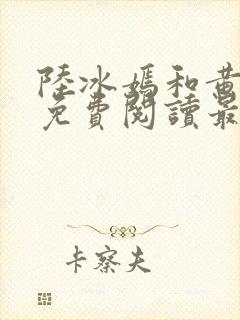 陸冰嫣和黃
免費閱讀最
卡察夫